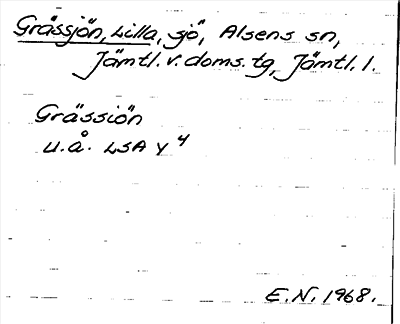 Grässjön, Lilla, sjö, Alsens sn,
Jämtl. v. doms. tg, Jämtl. l.
Grässiön
u.å. LSA Y 4
E.N. 1968.